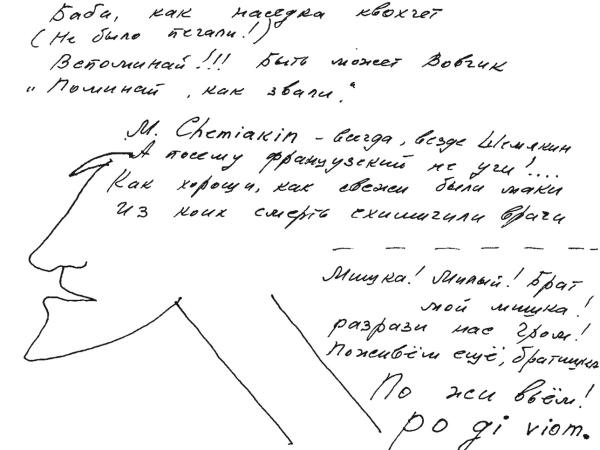 Баба, как наседка квохчет
(Не было печали!)
Вспоминай!!! Быть может Вовчик
"Поминай, как звали."
М. Chemiakin – всегда, везде Шемякин
А посему французский не учи!....
Как хороши, как свежи были маки
Из коих смерть схимичили врачи
Мишка! Милый! Брат
мой мишка!
разрази нас Гром!
Поживём ещё, братишка
По жи вьём!
po gi viom.